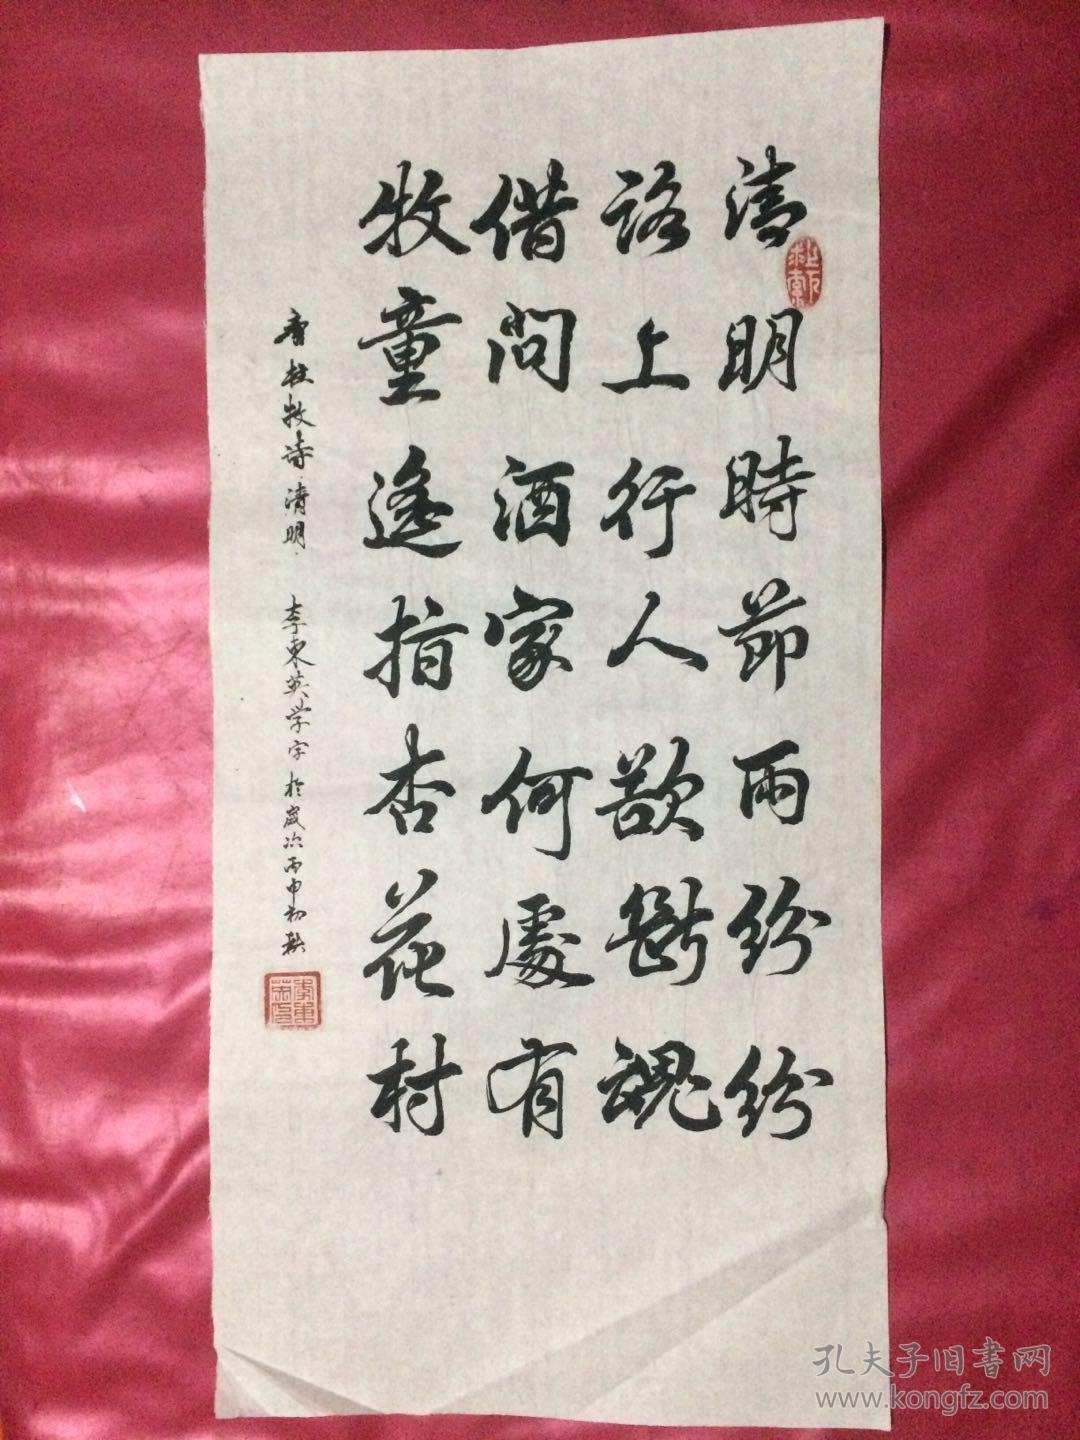 清明時節雨紛紛
路上行人欲斷魂
借問酒家何處有
牧童遙指杏花村
唐杜牧詩清明
李東英学字於歲次丙申初秋
上下求索
李東英印
孔夫子旧書网
www.kongfz.com